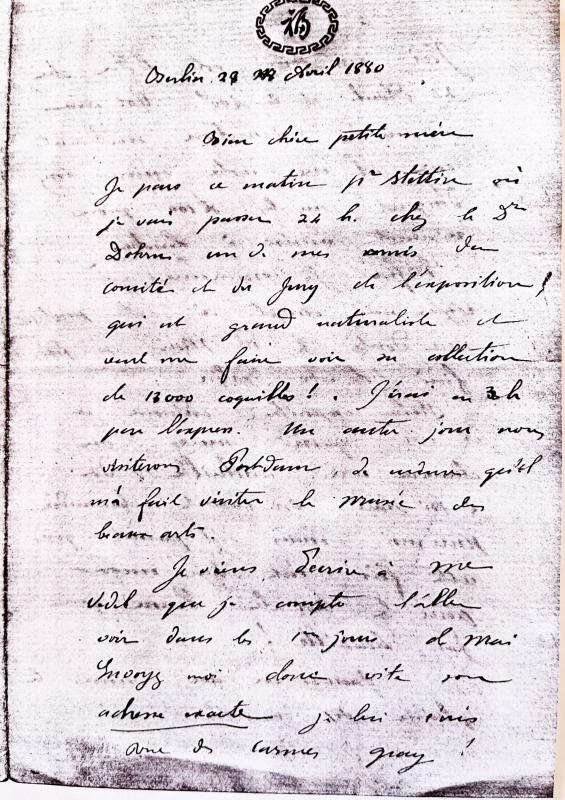 福
Berlin 28 Avril 1880
Bien chère petite mère
Je pars ce matin pr Stettin où
je vais passer 24 h. chez le Dr
Dohrn un de mes amis du
comité et du Jury de l'exposition!
qui est grand naturaliste et
veut me faire voir sa collection
de 13000 coquilles! . J'irai en 3h
par l'express. Un autre jour nous
visiterons Postdam, de même qu'il
m'a fait visiter le Musée des
beaux arts.
Je viens d'écrire à Me
Vidal que je compte l'aller
voir dans les 1ers jours de Mai
Envoyez moi donc vite son
adresse exacte je lui écris
des Carmes Gray !